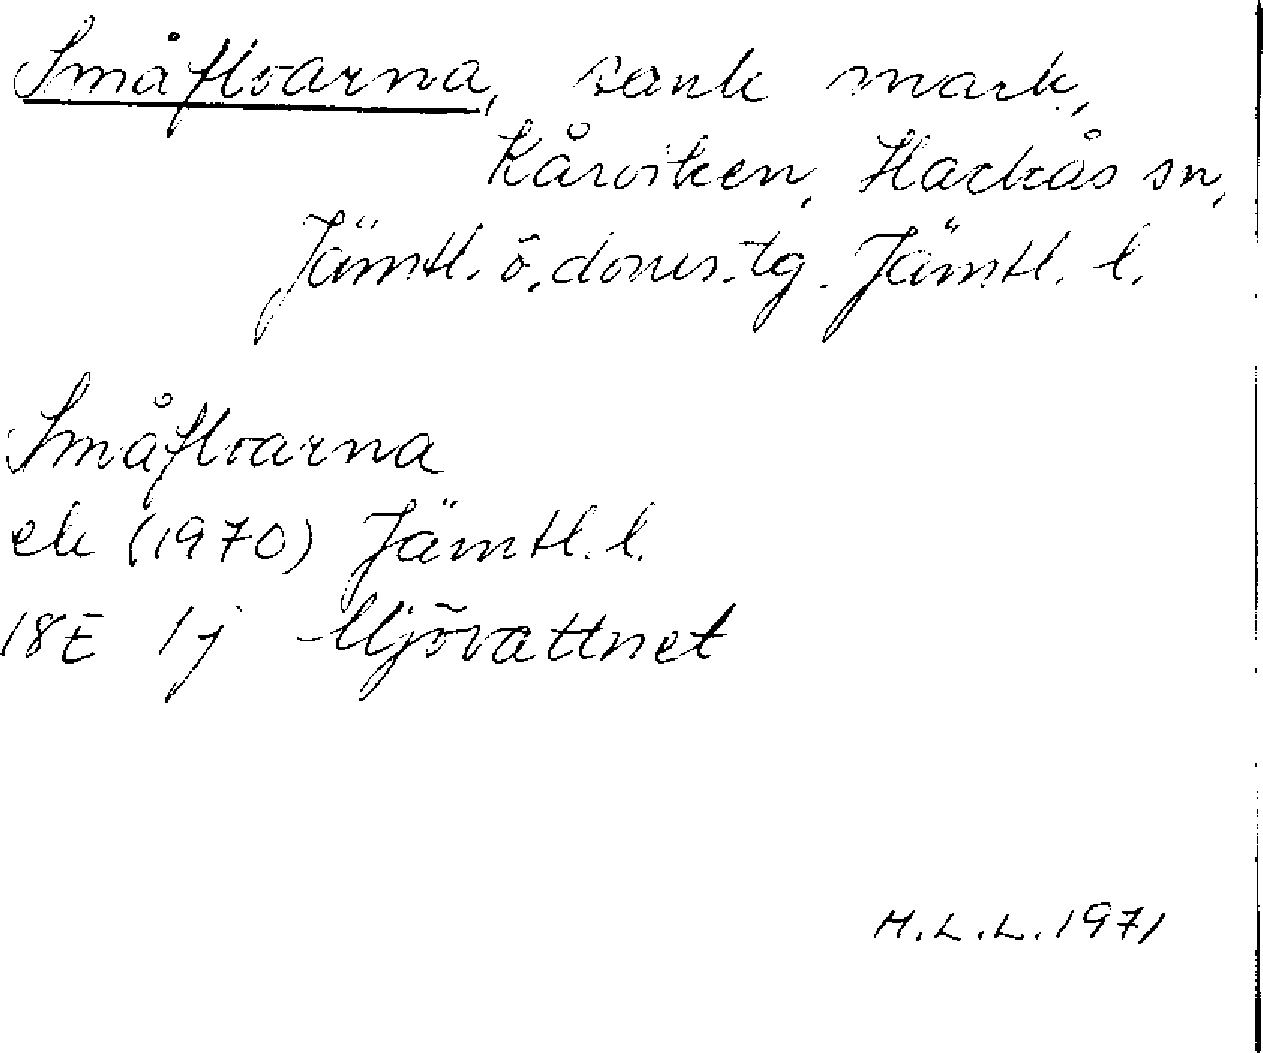 Småflvarna, sank mark,
Kårviken, Hackås sn,
Jämtl. ö. doms.tg. Jämtl. l.
Småflvarna
ek (1970) Jämtl. l.
18E 1j Mjövattnet
M.L.L. 1971